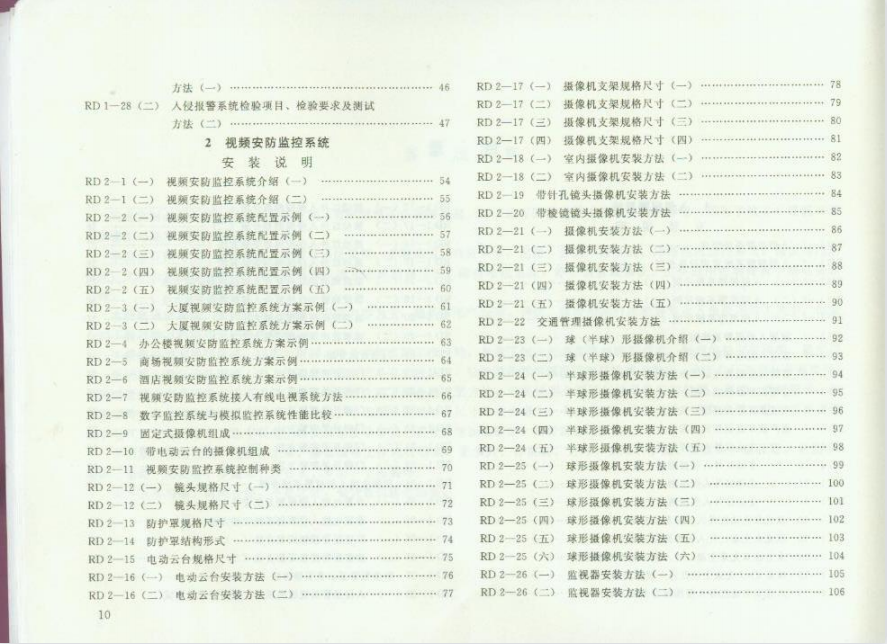 方法（一） …… 46
RD 1—28（二） 入侵报警系统检验项目、检验要求及测试
方法（二） …… 47
2 视频安防监控系统
安装说明
RD 2—1（一） 视频安防监控系统介绍（一） …… 54
RD 2—1（二） 视频安防监控系统介绍（二） …… 55
RD 2—2（一） 视频安防监控系统配置示例（一） …… 56
RD 2—2（二） 视频安防监控系统配置示例（二） …… 57
RD 2—2（三） 视频安防监控系统配置示例（三） …… 58
RD 2—2（四） 视频安防监控系统配置示例（四） …… 59
RD 2—2（五） 视频安防监控系统配置示例（五） …… 60
RD 2—3（一） 大厦视频安防监控系统方案示例（一） …… 61
RD 2—3（二） 大厦视频安防监控系统方案示例（二） …… 62
RD 2—4 办公楼视频安防监控系统方案示例 …… 63
RD 2—5 商场视频安防监控系统方案示例 …… 64
RD 2—6 酒店视频安防监控系统方案示例 …… 65
RD 2—7 视频安防监控系统接入有线电视系统方法 …… 66
RD 2—8 数字监控系统与模拟监控系统性能比较 …… 67
RD 2—9 固定式摄像机组成 …… 68
RD 2—10 带电动云台的摄像机组成 …… 69
RD 2—11 视频安防监控系统控制种类 …… 70
RD 2—12（一） 镜头规格尺寸（一） …… 71
RD 2—12（二） 镜头规格尺寸（二） …… 72
RD 2—13 防护罩规格尺寸 …… 73
RD 2—14 防护罩结构形式 …… 74
RD 2—15 电动云台规格尺寸 …… 75
RD 2—16（一） 电动云台安装方法（一） …… 76
RD 2—16（二） 电动云台安装方法（二） …… 77
10
RD 2—17（一） 摄像机支架规格尺寸（一） …… 78
RD 2—17（二） 摄像机支架规格尺寸（二） …… 79
RD 2—17（三） 摄像机支架规格尺寸（三） …… 80
RD 2—17（四） 摄像机支架规格尺寸（四） …… 81
RD 2—18（一） 室内摄像机安装方法（一） …… 82
RD 2—18（二） 室内摄像机安装方法（二） …… 83
RD 2—19 带针孔镜头摄像机安装方法 …… 84
RD 2—20 带棱镜镜头摄像机安装方法 …… 85
RD 2—21（一） 摄像机安装方法（一） …… 86
RD 2—21（二） 摄像机安装方法（二） …… 87
RD 2—21（三） 摄像机安装方法（三） …… 88
RD 2—21（四） 摄像机安装方法（四） …… 89
RD 2—21（五） 摄像机安装方法（五） …… 90
RD 2—22 交通管理摄像机安装方法 …… 91
RD 2—23（一） 球（半球）形摄像机介绍（一） …… 92
RD 2—23（二） 球（半球）形摄像机介绍（二） …… 93
RD 2—24（一） 半球形摄像机安装方法（一） …… 94
RD 2—24（二） 半球形摄像机安装方法（二） …… 95
RD 2—24（三） 半球形摄像机安装方法（三） …… 96
RD 2—24（四） 半球形摄像机安装方法（四） …… 97
RD 2—24（五） 半球形摄像机安装方法（五） …… 98
RD 2—25（一） 球形摄像机安装方法（一） …… 99
RD 2—25（二） 球形摄像机安装方法（二） …… 100
RD 2—25（三） 球形摄像机安装方法（三） …… 101
RD 2—25（四） 球形摄像机安装方法（四） …… 102
RD 2—25（五） 球形摄像机安装方法（五） …… 103
RD 2—25（六） 球形摄像机安装方法（六） …… 104
RD 2—26（一） 监视器安装方法（一） …… 105
RD 2—26（二） 监视器安装方法（二） …… 106